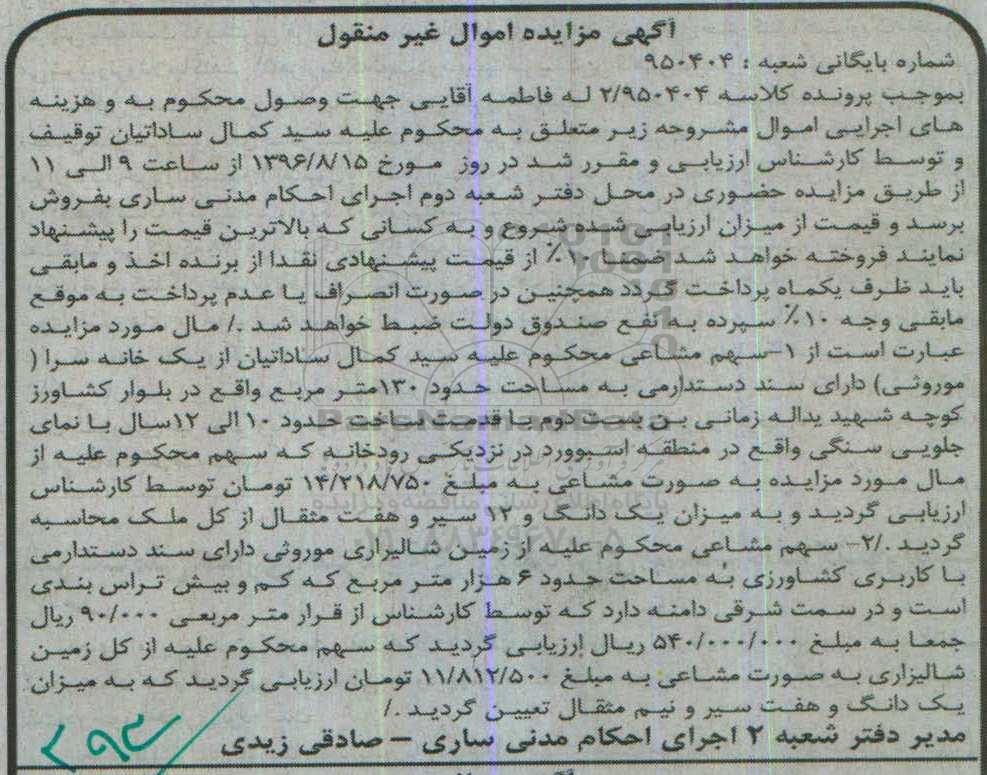 آگهی مزایده اموال غیر منقول
شماره بایگانی شعبه : ۹۵۰۴۰۴
بموجب پرونده کلاسه ۲/۹۵۰۴۰۴ له فاطمه آقایی جهت وصول محکوم به و هزینه
های اجرایی اموال مشروحه زیر متعلق به محکوم علیه سید کمال ساداتیان توقیف
و توسط کارشناس ارزیابی و مقرر شد در روز مورخ ۱۳۹۶/۸/۱۵ از ساعت ۹ الی ۱۱
از طریق مزایده حضوری در محل دفتر شعبه دوم اجرای احکام مدنی ساری بفروش
برسد و قیمت از میزان ارزیابی شده شروع و به کسانی که بالاترین قیمت را پیشنهاد
نمایند فروخته خواهد شد ضمنا ۱۰٪ از قیمت پیشنهادی نقدا از برنده اخذ و مابقی
باید ظرف یکماه پرداخت گردد همچنین در صورت انصراف یا عدم پرداخت به موقع
مابقی وجه ۱۰٪ سپرده به نفع صندوق دولت ضبط خواهد شد ./ مال مورد مزایده
عبارت است از ۱-سهم مشاعی محکوم علیه سید کمال ساداتیان از یک خانه سرا (
موروثی) دارای سند دستدارمی به مساحت حدود ۱۳۰متر مربع واقع در بلوار کشاورز
کوچه شهید یداله زمانی بن بست دوم با قدمت ساخت حدود ۱۰ الی ۱۲سال با نمای
جلویی سنگی واقع در منطقه اسبوورد در نزدیکی رودخانه که سهم محکوم علیه از
مال مورد مزایده به صورت مشاعی به مبلغ ۱۴/۲۱۸/۷۵۰ تومان توسط کارشناس
ارزیابی گردید و به میزان یک دانگ و ۱۲ سیر و هفت مثقال از کل ملک محاسبه
گردید ./۲- سهم مشاعی محکوم علیه از زمین شالیراری موروثی دارای سند دستدارمی
با کاربری کشاورزی به مساحت حدود ۶ هزار متر مربع که کم و بیش تراس بندی
است و در سمت شرقی دامنه دارد که توسط کارشناس از قرار متر مربعی ۹۰/۰۰۰ ریال
جمعا به مبلغ ۵۴۰/۰۰۰/۰۰۰ ریال ارزیابی گردید که سهم محکوم علیه از کل زمین
شالیزاری به صورت مشاعی به مبلغ ۱۱/۸۱۲/۵۰۰ تومان ارزیابی گردید که به میزان
یک دانگ و هفت سیر و نیم مثقال تعیین گردید ./
مدیر دفتر شعبه ۲ اجرای احکام مدنی ساری - صادقی زیدی